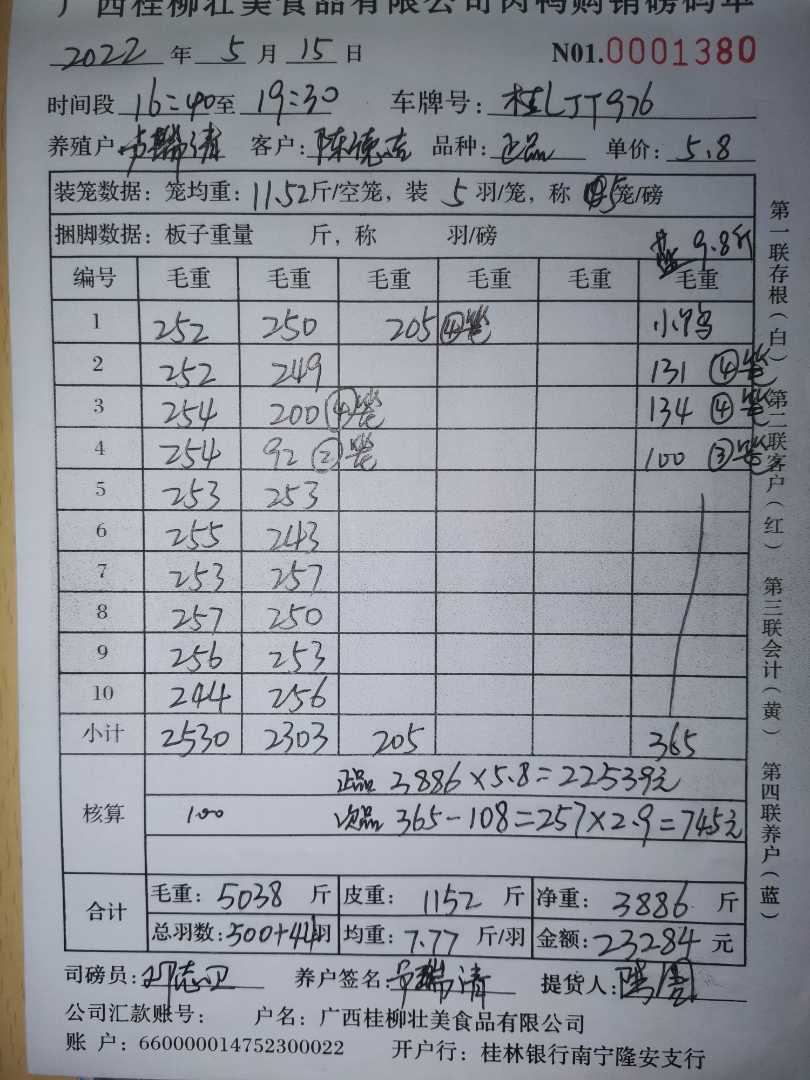 广西桂柳壮美食品有限公司肉鸭购销磅码单
2022 年 5 月 15 日 N01.0001380
时间段 16:40 至 19:30 车牌号: 桂LJT976
养殖户 清 客户: 陈德 品种: 正品 单价: 5.8
装笼数据: 笼均重: 11.52 斤/空笼, 装 5 羽/笼, 称 5 笼/磅
捆脚数据: 板子重量 斤, 称 羽/磅 9.8斤
编号 毛重 毛重 毛重 毛重 毛重 毛重
1 252 250 205 ④笼 小鸭
2 252 249 131 ④笼
3 254 200 ④笼 134 ④笼
4 254 92 ②笼 100 ③笼
5 253 253
6 255 243
7 253 257
8 257 250
9 256 253
10 244 256
小计 2530 2303 205 365
核算 正品 3886×5.8=22539元
100 次品 365-108=257×2.9=745元
合计 毛重: 5038 斤 皮重: 1152 斤 净重: 3886 斤
总羽数: 500+44羽 均重: 7.77 斤/羽 金额: 23284 元
司磅员: 邓志卫 养户签名: 清 提货人:
公司汇款账号: 户名: 广西桂柳壮美食品有限公司
账 户: 660000014752300022 开户行: 桂林银行南宁隆安支行
第一联存根(白) 第二联客户(红) 第三联会计(黄) 第四联养户(蓝)